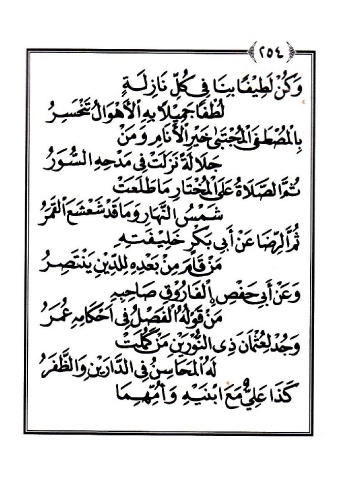 ﴿٢٥٤﴾
وَكُنْ لَطِيفًا بِنَا فِي كُلِّ نَازِلَةٍ
لُطْفًا جَمِيلًا بِهِ الْأَهْوَالُ تَنْحَسِرُ
بِالْمُصْطَفَى الْمُجْتَبَى خَيْرِ الْأَنَامِ وَمَنْ
جَلَالَةً نَزَلَتْ فِي مَدْحِهِ السُّوَرُ
ثُمَّ الصَّلَاةُ عَلَى الْمُخْتَارِ مَا طَلَعَتْ
شَمْسُ النَّهَارِ وَمَا قَدْ شَعْشَعَ الْقَمَرُ
ثُمَّ الرِّضَا عَنْ أَبِي بَكْرٍ خَلِيفَتِهِ
مَنْ قَامَ مِنْ بَعْدِهِ لِلدِّينِ يَنْتَصِرُ
وَعَنْ أَبِي حَفْصٍ الْفَارُوقِ صَاحِبِهِ
مَنْ قَوْلُهُ الْفَصْلُ فِي أَحْكَامِهِ عُمَرُ
وَجُدْ لِعُثْمَانَ ذِي النُّورَيْنِ مَنْ كَمُلَتْ
لَهُ الْمَحَاسِنُ فِي الدَّارَيْنِ وَالظَّفَرُ
كَذَا عَلِيٌّ مَعَ ابْنَيْهِ وَأُمِّهِمَا